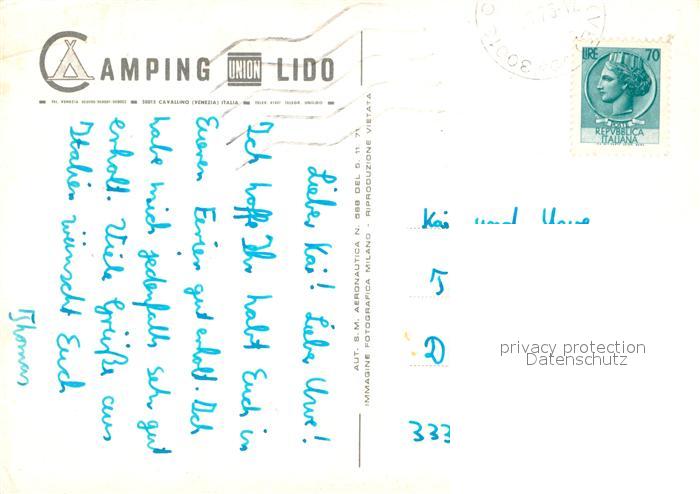 CAMPING UNION LIDO
30013 CAVALLINO (VENEZIA) ITALIA
LIRE 70
POSTE
REPVBBLICA
ITALIANA
Lieber Kai! Lieber Uwe!
Ich hoffe Ihr habt Euch in
Eueren Ferien gut erholt. Ich
habe mich jedenfalls sehr gut
erholt. Viele Grüße aus
Italien wünscht Euch
Thomas
AUT. S. M. AERONAUTICA N. 588 DEL 5. 11. 71
IMMAGINE FOTOGRAFICA MILANO - RIPRODUZIONE VIETATA
Kai und Uwe
T
D
333
privacy protection
Datenschutz